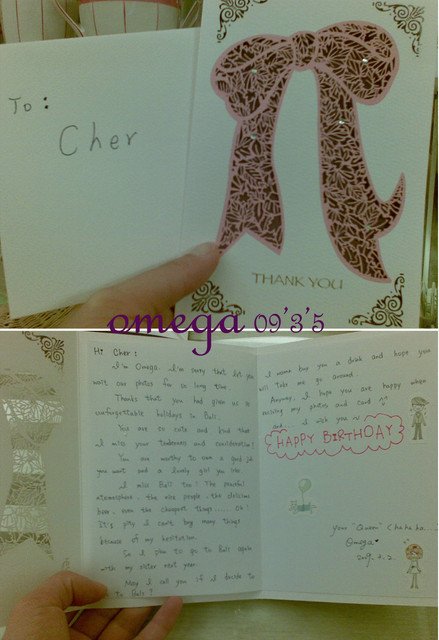 To:
Cher
THANK YOU
omega 09'3'5
Hi Cher:
I'm Omega. I'm sorry that let you
wait our photos for so long time.
Thanks that you had given us so
unforgettable holidays in Bali.
You are so cute and kind that
I miss your tenderness and consideration!
You are worthy to own a good job
you want and a lovely girl you like.
I miss Bali too! The peaceful
atmosphere, the nice people, the delicious
beer, even the cheapest things...... Oh
It's pity I can't buy many things
because of my hesitation.
So I plan to go to Bali again
with my sister next year.
May I call you if I decide to
to Bali?
I wanna buy you a drink and hope you
will take me go around.
Anyway, I hope you are happy when
my photos and card
and I wish you ~
HAPPY BIRTHDAY
your "Queen" Cha ha ha...
Omega
2009. 3. 2.